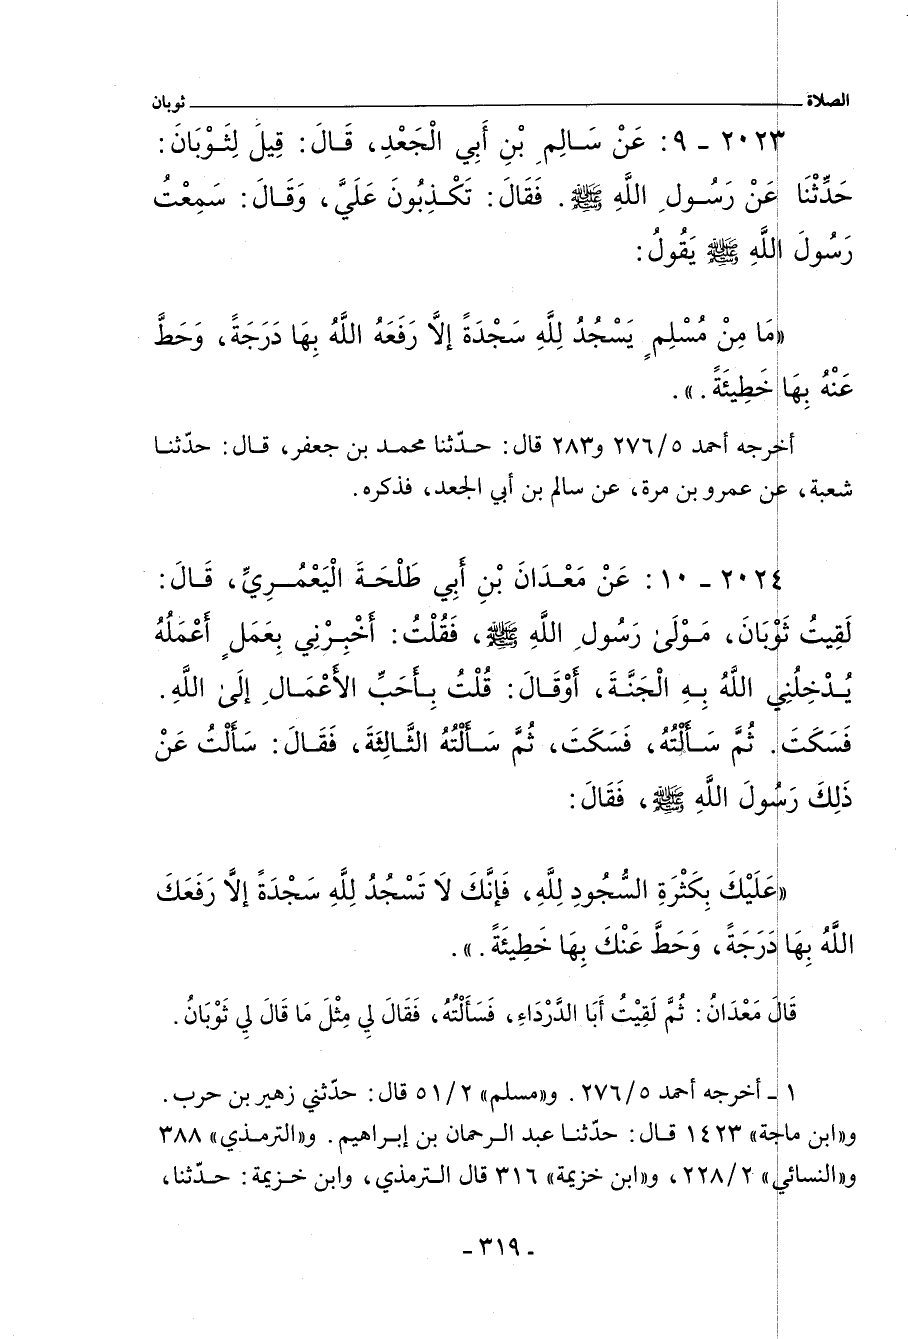 الصلاة ثوبان
٢٠٢٣ - ٩ : عَنْ سَالِمِ بْنِ أَبِي الْجَعْدِ، قَالَ: قِيلَ لِثَوْبَانَ:
حَدِّثْنَا عَنْ رَسُولِ اللَّهِ ﷺ. فَقَالَ: تَكْذِبُونَ عَلَيَّ، وَقَالَ: سَمِعْتُ
رَسُولَ اللَّهِ ﷺ يَقُولُ:
«مَا مِنْ مُسْلِمٍ يَسْجُدُ لِلَّهِ سَجْدَةً إلَّا رَفَعَهُ اللَّهُ بِهَا دَرَجَةً، وَحَطَّ
عَنْهُ بِهَا خَطِيئَةً.».
أخرجه أحمد ٢٧٦/٥ و٢٨٣ قال: حدّثنا محمد بن جعفر، قال: حدّثنا
شعبة، عن عمرو بن مرة، عن سالم بن أبي الجعد، فذكره.
٢٠٢٤ - ١٠ : عَنْ مَعْدَانَ بْنِ أَبِي طَلْحَةَ الْيَعْمُرِيِّ، قَالَ:
لَقِيتُ ثَوْبَانَ، مَوْلَىٰ رَسُولِ اللَّهِ ﷺ، فَقُلْتُ: أَخْبِرْنِي بِعَمَلٍ أَعْمَلُهُ
يُدْخِلُنِي اللَّهُ بِهِ الْجَنَّةَ، أَوْقَالَ: قُلْتُ بِأَحَبِّ الأَعْمَالِ إلَىٰ اللَّهِ.
فَسَكَتَ. ثُمَّ سَأَلْتُهُ، فَسَكَتَ، ثُمَّ سَأَلْتُهُ الثَّالِثَةَ، فَقَالَ: سَأَلْتُ عَنْ
ذَلِكَ رَسُولَ اللَّهِ ﷺ، فَقَالَ:
«عَلَيْكَ بِكَثْرَةِ السُّجُودِ لِلَّهِ، فَإنَّكَ لَا تَسْجُدُ لِلَّهِ سَجْدَةً إلَّا رَفَعَكَ
اللَّهُ بِهَا دَرَجَةً، وَحَطَّ عَنْكَ بِهَا خَطِيئَةً.».
قَالَ مَعْدَانُ: ثُمَّ لَقِيْتُ أَبَا الدَّرْدَاءِ، فَسَأَلْتُهُ، فَقَالَ لِي مِثْلَ مَا قَالَ لِي ثَوْبَانُ.
١ - أخرجه أحمد ٢٧٦/٥. و«مسلم» ٥١/٢ قال: حدّثني زهير بن حرب.
و«ابن ماجة» ١٤٢٣ قال: حدّثنا عبد الرحمان بن إبراهيم. و«الترمذي» ٣٨٨
و«النسائي» ٢٢٨/٢، و«ابن خزيمة» ٣١٦ قال الترمذي، وابن خزيمة: حدّثنا،
- ٣١٩ -